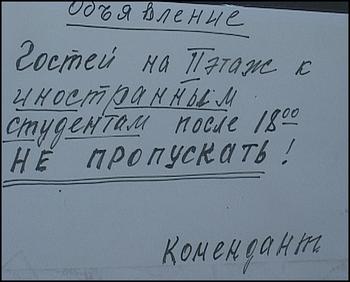 Объявление
Гостей на II этаж к
иностранным
студентам после 18⁰⁰
НЕ ПРОПУСКАТЬ!
Комендант